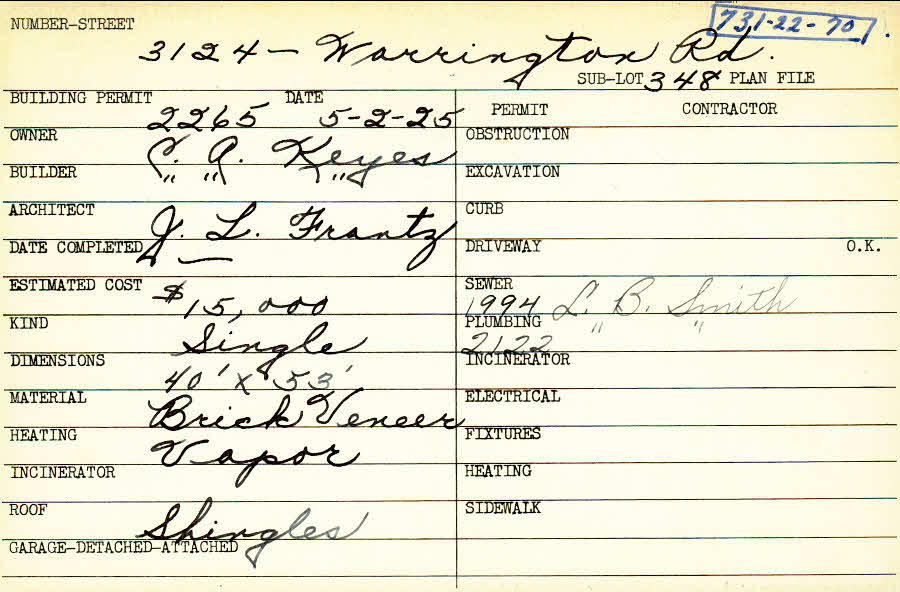 NUMBER-STREET
731-22-70
3124 - Warrington Rd.
SUB-LOT 348 PLAN FILE
BUILDING PERMIT DATE
2265 5-2-25
PERMIT CONTRACTOR
OWNER
C. A. Keyes
BUILDER
" " "
ARCHITECT
J. L. Frantz
DATE COMPLETED —
ESTIMATED COST
$15,000
KIND
Single
DIMENSIONS
40' x 53'
MATERIAL
Brick Veneer
HEATING
Vapor
INCINERATOR
ROOF
Shingles
GARAGE-DETACHED-ATTACHED
OBSTRUCTION
EXCAVATION
CURB
DRIVEWAY O.K.
SEWER
1994 L. B. Smith
PLUMBING
2122 " "
INCINERATOR
ELECTRICAL
FIXTURES
HEATING
SIDEWALK